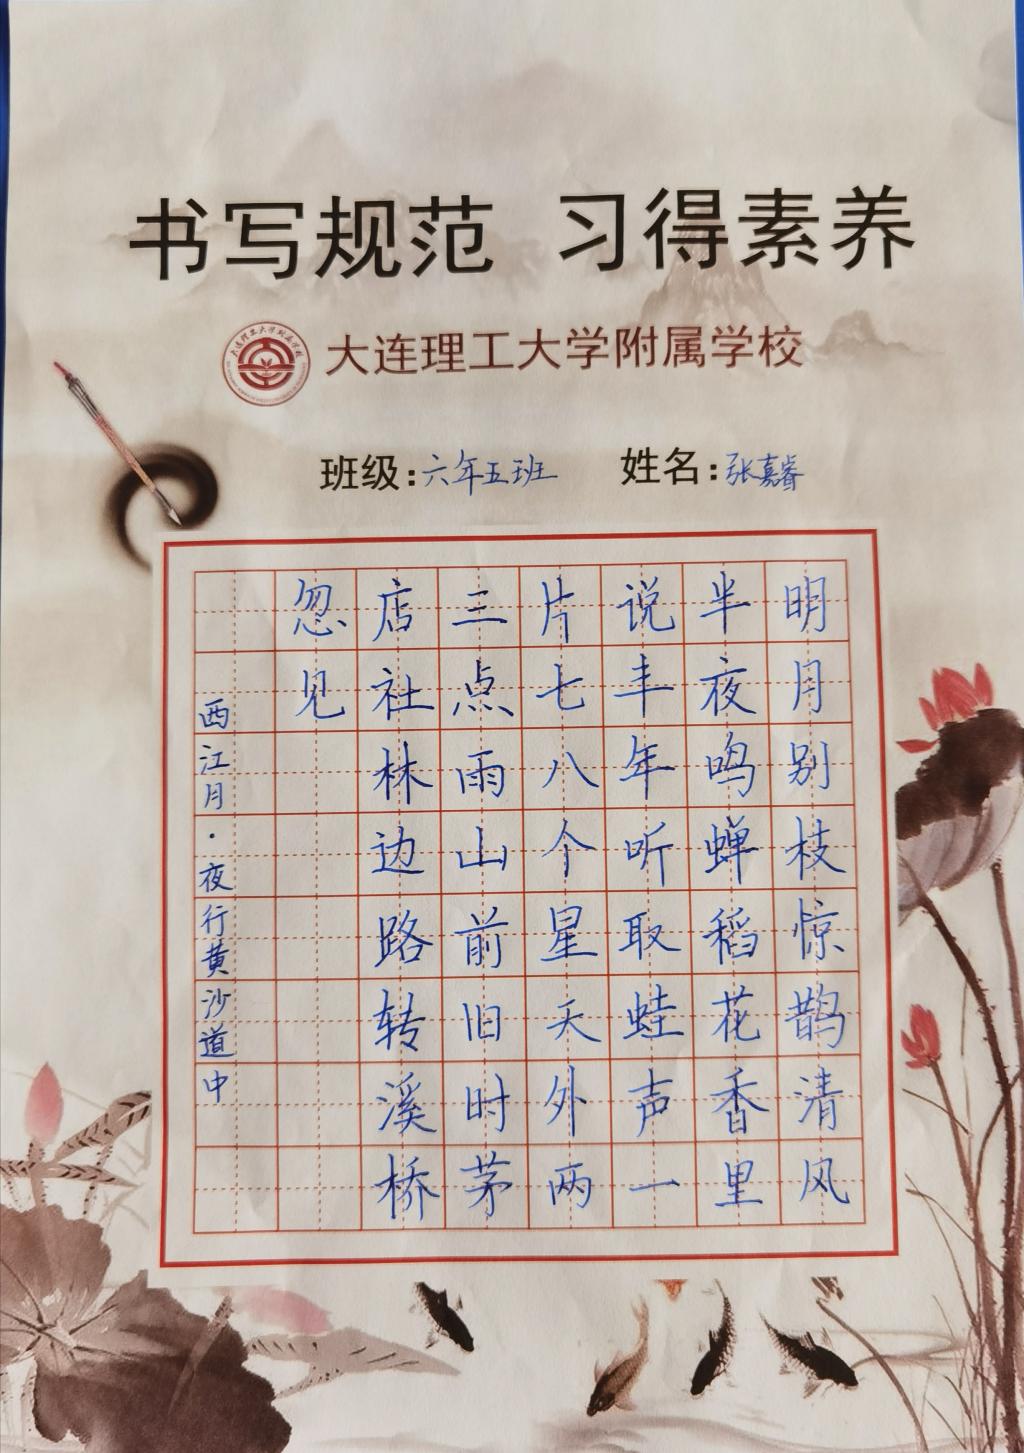 书写规范 习得素养
大连理工大学附属学校
班级:六年五班 姓名:张嘉睿
明月别枝惊鹊清风
半夜鸣蝉稻花香里
说丰年听取蛙声一
片七八个星天外两
三点雨山前旧时茅
店社林边路转溪桥
忽见
西江月·夜行黄沙道中